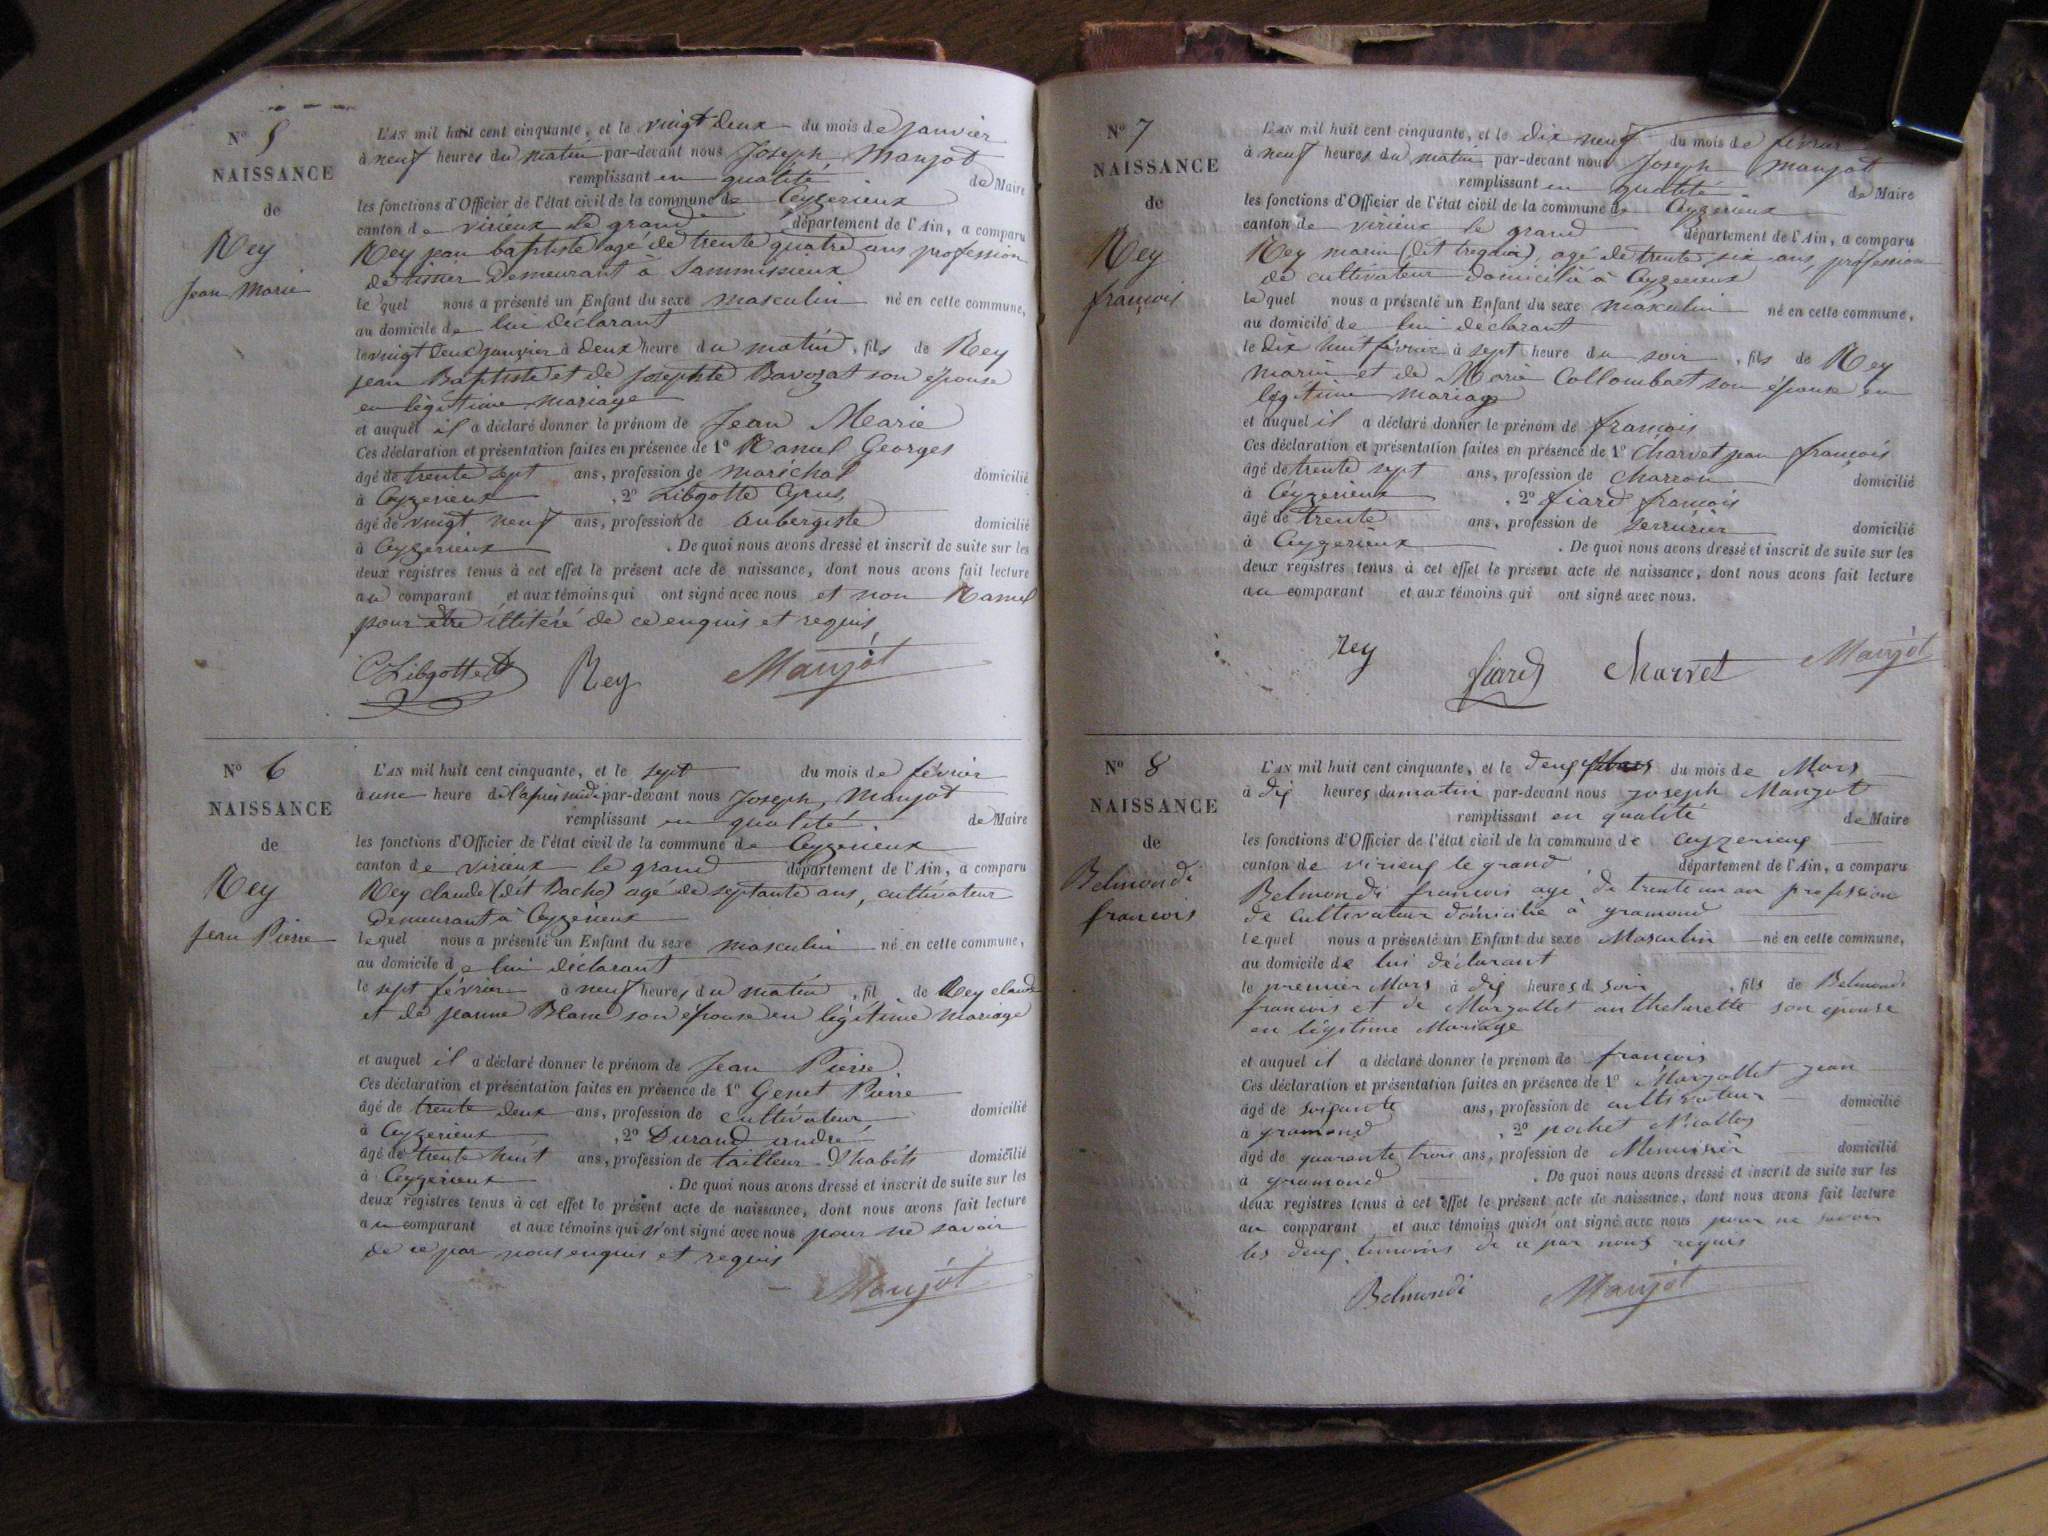 N° 5
NAISSANCE
de
Rey
Jean Marie
L'AN mil huit cent cinquante, et le vingt deux du mois de janvier
à neuf heures du matin par-devant nous Joseph Manjot
remplissant en qualité de Maire
les fonctions d'Officier de l'état civil de la commune de Ceyzerieux
canton de virieux le grand département de l'Ain, a comparu
Rey jean baptiste agé de trente quatre ans profession
de tissier demeurant à Sammissieux
le quel nous a présenté un Enfant du sexe masculin né en cette commune,
au domicile de lui déclarant
le vingt deux janvier à deux heure du matin, fils de Rey
jean Baptiste et de josephte Bavozat son épouse
en légitime mariage
et auquel il a déclaré donner le prénom de Jean Marie
Ces déclaration et présentation faites en présence de 1° Ramel Georges
âgé de trente sept ans, profession de maréchal domicilié
à Ceyzerieux , 2° Libgotte Cyrus
âgé de vingt neuf ans, profession de aubergiste domicilié
à Ceyzerieux . De quoi nous avons dressé et inscrit de suite sur les
deux registres tenus à cet effet le présent acte de naissance, dont nous avons fait lecture
au comparant et aux témoins qui ont signé avec nous et non Ramel
pour être illitéré de ce enquis et requis
CLibgotte Rey Manjot
N° 6
NAISSANCE
de
Rey
Jean Pierre
L'AN mil huit cent cinquante, et le sept du mois de février
à une heure de l'après midi par-devant nous Joseph Manjot
remplissant en qualité de Maire
les fonctions d'Officier de l'état civil de la commune de Ceyzerieux
canton de virieux le grand département de l'Ain, a comparu
Rey claude (dit Bacho) agé de septante ans, cultivateur
demeurant à Ceyzerieux
lequel nous a présenté un Enfant du sexe masculin né en cette commune,
au domicile de lui déclarant
le sept février à neuf heures du matin, fil de Rey claude
et de jeanne Blanc son épouse en légitime mariage
et auquel il a déclaré donner le prénom de Jean Pierre
Ces déclaration et présentation faites en présence de 1° Genet Pierre
âgé de trente deux ans, profession de cultivateur domicilié
à Ceyzerieux , 2° Durand andré
âgé de trente huit ans, profession de tailleur d'habits domicilié
à Ceyzerieux . De quoi nous avons dressé et inscrit de suite sur les
deux registres tenus à cet effet le présent acte de naissance, dont nous avons fait lecture
au comparant et aux témoins qui n'ont signé avec nous pour ne savoir
de ce par nous enquis et requis
Manjot
N° 7
NAISSANCE
de
Rey
françois
L'AN mil huit cent cinquante, et le dix neuf du mois de février
à neuf heures du matin par-devant nous Joseph Manjot
remplissant en qualité de Maire
les fonctions d'Officier de l'état civil de la commune de Ceyzerieux
canton de virieux le grand département de l'Ain, a comparu
Rey marin (dit), agé de trente six ans, profession
de cultivateur domicilié à Ceyzerieux
le quel nous a présenté un Enfant du sexe masculin né en cette commune,
au domicile de lui déclarant
le dix huit février à sept heure du soir, fils de Rey
marin et de Marie Collombaet son épouse en
légitime mariage
et auquel il a déclaré donner le prénom de françois
Ces déclaration et présentation faites en présence de 1° Charvet jean françois
âgé de trente sept ans, profession de charron domicilié
à Ceyzerieux , 2° fiard françois
âgé de trente ans, profession de serrurier domicilié
à Ceyzerieux . De quoi nous avons dressé et inscrit de suite sur les
deux registres tenus à cet effet le présent acte de naissance, dont nous avons fait lecture
au comparant et aux témoins qui ont signé avec nous.
rey fiard Charvet Manjot
N° 8
NAISSANCE
de
Belmondi
francois
L'AN mil huit cent cinquante, et le deux du mois de Mars
à dix heures du matin par-devant nous joseph Manjot
remplissant en qualité de Maire
les fonctions d'Officier de l'état civil de la commune de ceyzerieux
canton de virieux le grand département de l'Ain, a comparu
Belmondi francois agé de trente un an profession
de cultivateur domicilié à gramond
lequel nous a présenté un Enfant du sexe Masculin né en cette commune,
au domicile de lui déclarant
le premier Mars à dix heures d soir, fils de Belmondi
francois et de Marjollet anthelmette son épouse
en légitime Mariage
et auquel il a déclaré donner le prénom de francois
Ces déclaration et présentation faites en présence de 1° Marjollet jean
âgé de soixante ans, profession de cultivateur domicilié
à gramond , 2° pochet
âgé de quarante trois ans, profession de Menuisier domicilié
à gramond . De quoi nous avons dressé et inscrit de suite sur les
deux registres tenus à cet effet le présent acte de naissance, dont nous avons fait lecture
au comparant et aux témoins qui n ont signé avec nous pour ne savoir
les deux temoins de ce par nous requis
Belmondi Manjot